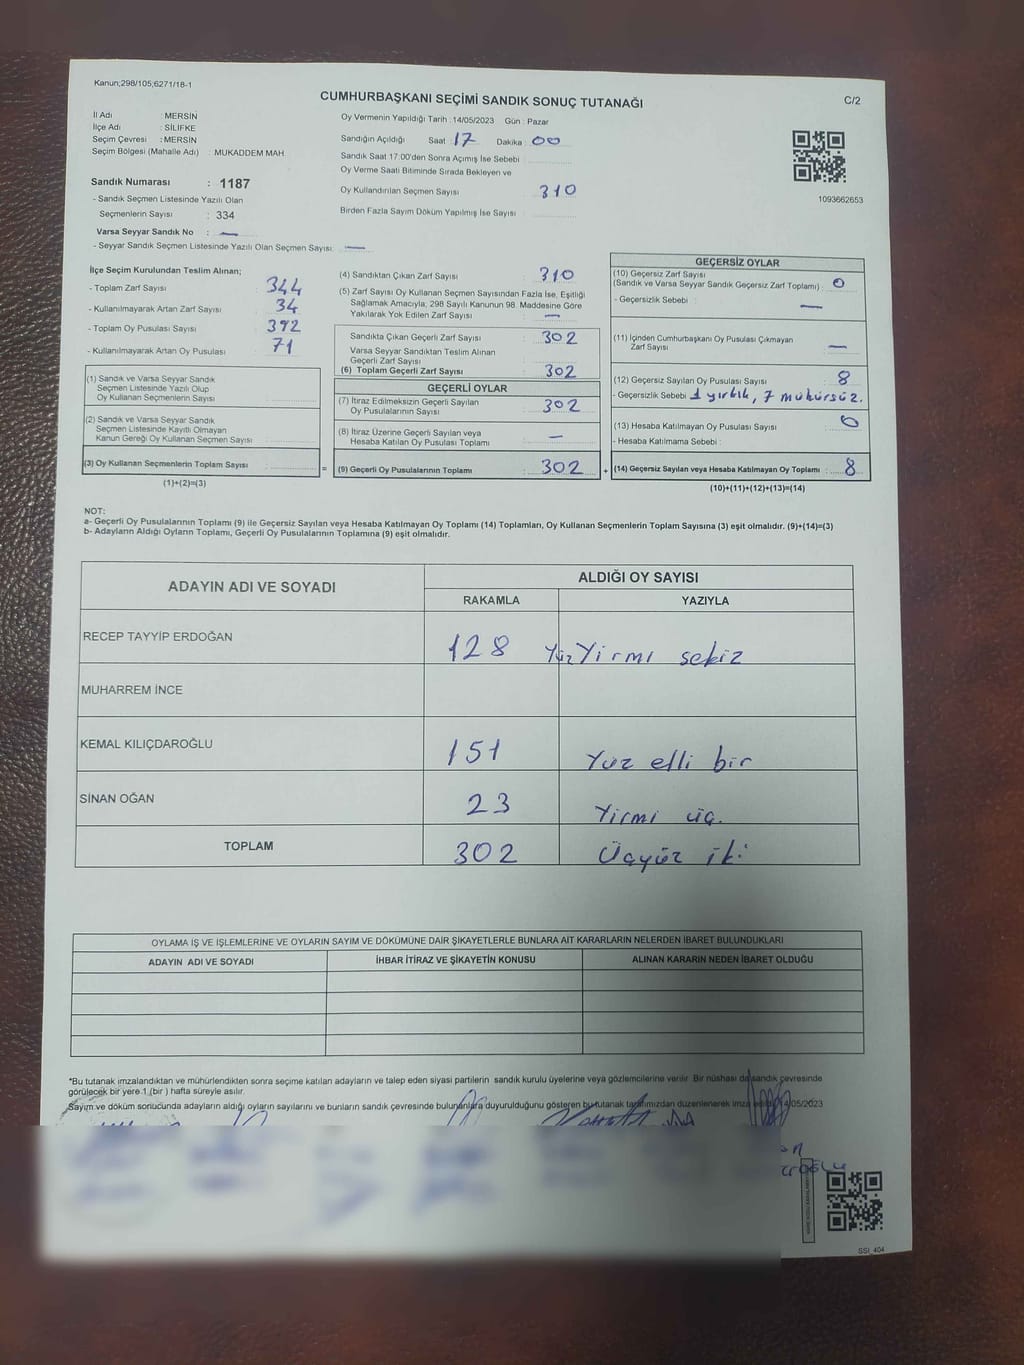 Kanun;298/105;6271/18-1
CUMHURBAŞKANI SEÇİMİ SANDIK SONUÇ TUTANAĞI
C/2
İl Adı : MERSİN
İlçe Adı : SİLİFKE
Seçim Çevresi : MERSİN
Seçim Bölgesi (Mahalle Adı) : MUKADDEM MAH.
Sandık Numarası : 1187
- Sandık Seçmen Listesinde Yazılı Olan
Seçmenlerin Sayısı : 334
Varsa Seyyar Sandık No : —
- Seyyar Sandık Seçmen Listesinde Yazılı Olan Seçmen Sayısı: —
Oy Vermenin Yapıldığı Tarih : 14/05/2023 Gün : Pazar
Sandığın Açıldığı Saat : 17 Dakika : 00
Sandık Saat 17:00'den Sonra Açılmış İse Sebebi :
Oy Verme Saati Bitiminde Sırada Bekleyen ve
Oy Kullandırılan Seçmen Sayısı : 310
Birden Fazla Sayım Döküm Yapılmış İse Sayısı :
1093662653
İlçe Seçim Kurulundan Teslim Alınan;
- Toplam Zarf Sayısı : 344
- Kullanılmayarak Artan Zarf Sayısı : 34
- Toplam Oy Pusulası Sayısı : 392
- Kullanılmayarak Artan Oy Pusulası : 71
(1) Sandık ve Varsa Seyyar Sandık
Seçmen Listesinde Yazılı Olup
Oy Kullanan Seçmenlerin Sayısı :
(2) Sandık ve Varsa Seyyar Sandık
Seçmen Listesinde Kayıtlı Olmayan
Kanun Gereği Oy Kullanan Seçmen Sayısı :
(3) Oy Kullanan Seçmenlerin Toplam Sayısı :
(1)+(2)=(3)
=
(4) Sandıktan Çıkan Zarf Sayısı : 310
(5) Zarf Sayısı Oy Kullanan Seçmen Sayısından Fazla İse, Eşitliği
Sağlamak Amacıyla, 298 Sayılı Kanunun 98. Maddesine Göre
Yakılarak Yok Edilen Zarf Sayısı : —
Sandıkta Çıkan Geçerli Zarf Sayısı : 302
Varsa Seyyar Sandıktan Teslim Alınan
Geçerli Zarf Sayısı :
(6) Toplam Geçerli Zarf Sayısı : 302
GEÇERLİ OYLAR
(7) İtiraz Edilmeksizin Geçerli Sayılan
Oy Pusulalarının Sayısı : 302
(8) İtiraz Üzerine Geçerli Sayılan veya
Hesaba Katılan Oy Pusulası Toplamı : —
(9) Geçerli Oy Pusulalarının Toplamı : 302
+
GEÇERSİZ OYLAR
(10) Geçersiz Zarf Sayısı
(Sandık ve Varsa Seyyar Sandık Geçersiz Zarf Toplamı) : 0
- Geçersizlik Sebebi : —
(11) İçinden Cumhurbaşkanı Oy Pusulası Çıkmayan
Zarf Sayısı : —
(12) Geçersiz Sayılan Oy Pusulası Sayısı : 8
- Geçersizlik Sebebi : 1 yırtık, 7 mühürsüz.
(13) Hesaba Katılmayan Oy Pusulası Sayısı : 0
- Hesaba Katılmama Sebebi :
(14) Geçersiz Sayılan veya Hesaba Katılmayan Oy Toplamı : 8
(10)+(11)+(12)+(13)=(14)
NOT:
a- Geçerli Oy Pusulalarının Toplamı (9) ile Geçersiz Sayılan veya Hesaba Katılmayan Oy Toplamı (14) Toplamları, Oy Kullanan Seçmenlerin Toplam Sayısına (3) eşit olmalıdır. (9)+(14)=(3)
b- Adayların Aldığı Oyların Toplamı, Geçerli Oy Pusulalarının Toplamına (9) eşit olmalıdır.
ADAYIN ADI VE SOYADI ALDIĞI OY SAYISI
RAKAMLA YAZIYLA
RECEP TAYYİP ERDOĞAN 128 Yüz Yirmi sekiz
MUHARREM İNCE
KEMAL KILIÇDAROĞLU 151 Yüz elli bir
SİNAN OĞAN 23 Yirmi üç.
TOPLAM 302 Üçyüz iki
OYLAMA İŞ VE İŞLEMLERİNE VE OYLARIN SAYIM VE DÖKÜMÜNE DAİR ŞİKAYETLERLE BUNLARA AİT KARARLARIN NELERDEN İBARET BULUNDUKLARI
ADAYIN ADI VE SOYADI İHBAR İTİRAZ VE ŞİKAYETİN KONUSU ALINAN KARARIN NEDEN İBARET OLDUĞU
*Bu tutanak imzalandıktan ve mühürlendikten sonra seçime katılan adayların ve talep eden siyasi partilerin sandık kurulu üyelerine veya gözlemcilerine verilir. Bir nüshası da sandık çevresinde
görülecek bir yere 1 (bir) hafta süreyle asılır.
Sayım ve döküm sonucunda adayların aldığı oyların sayılarını ve bunların sandık çevresinde bulunanlara duyurulduğunu gösteren bu tutanak tarafımızdan düzenlenerek imza edildi. 14/05/2023
SSI_404